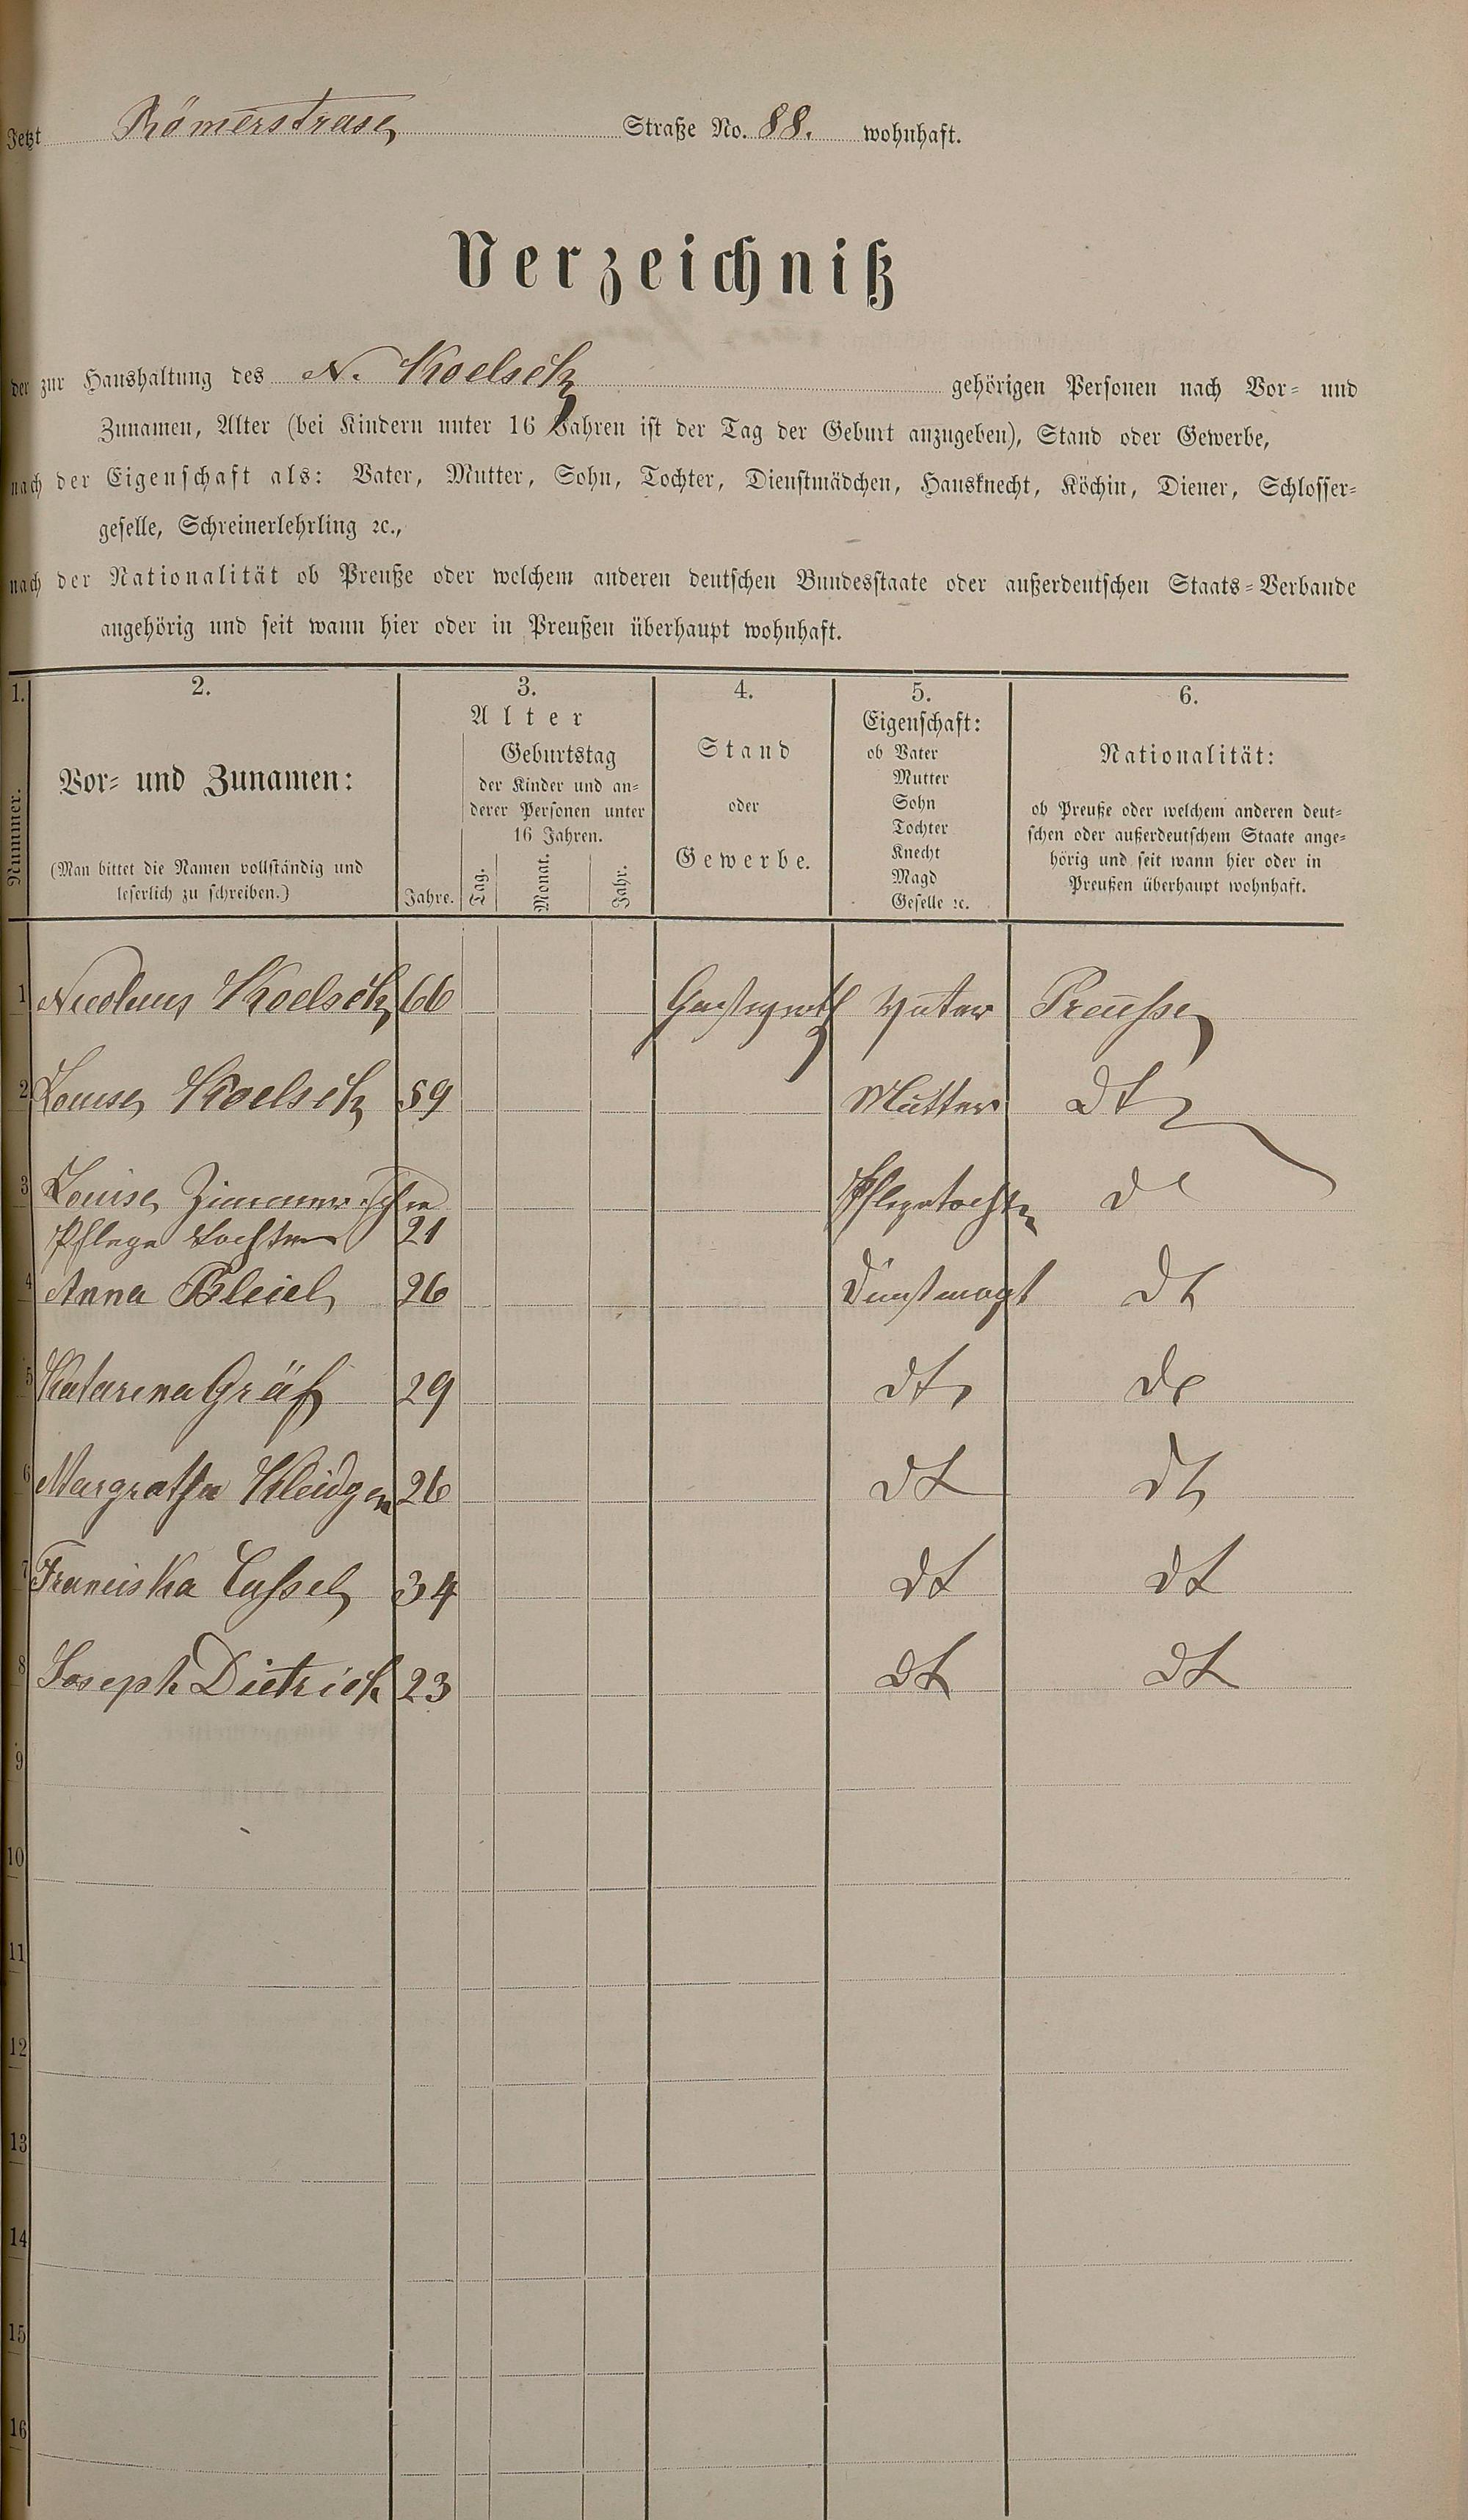 Jetzt Römerstrase Straße No. 88. wohnhaft.
Verzeichniß
der zur Haushaltung des N. Koelsch gehörigen Personen nach Vor- und
Zunamen, Alter (bei Kindern unter 16 Jahren ist der Tag der Geburt anzugeben), Stand oder Gewerbe,
nach der Eigenschaft als: Vater, Mutter, Sohn, Tochter, Dienstmädchen, Hausknecht, Köchin, Diener, Schlosser-
geselle, Schreinerlehrling ꝛc.,
nach der Nationalität ob Preuße oder welchem anderen deutschen Bundesstaate oder außerdeutschen Staats-Verbande
angehörig und seit wann hier oder in Preußen überhaupt wohnhaft.
1. 2. 3. 4. 5. 6.
Nummer.
Vor- und Zunamen:
(Man bittet die Namen vollständig und
leserlich zu schreiben.)
Alter
Jahre.
Geburtstag
der Kinder und an-
derer Personen unter
16 Jahren.
Tag. Monat. Jahr.
Stand
oder
Gewerbe.
Eigenschaft:
ob Vater
Mutter
Sohn
Tochter
Knecht
Magd
Geselle ꝛc.
Nationalität:
ob Preuße oder welchem anderen deut-
schen oder außerdeutschem Staate ange-
hörig und seit wann hier oder in
Preußen überhaupt wohnhaft.
1 Nicolaus Koelsch 66 Gastwirth Vater Preusse
2 Louise Koelsch 59 Mutter dt
3 Louise Pflegetochter dt
Pflege Tochter 21
4 Anna Bleiel 26 Dienstmagt dt
5 Katarina Gräf 29 dt dt
6 Margratha Kleidgen 26 dt dt
7 Franciska Cassel 34 dt dt
8 Joseph Dietrich 23 dt dt
9
10
11
12
13
14
15
16